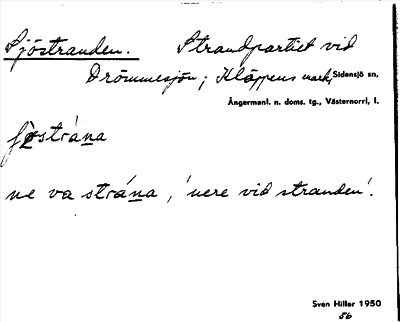 Sjöstranden. Strandpartiet vid
Drömmesjön; Kläppens mark, Sidensjö sn,
Ångermanl. n. doms. tg., Västernorrl, l.
strána
ne va strána, 'nere vid stranden'.
Sven Hiller 1950
86